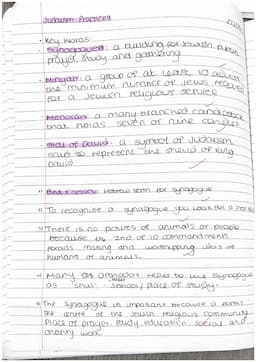 Judaism: Practices
· Key Words:
· Synagogue: a building for Jewish public
prayer, study and gathering
· Minyan: a group of at least 10 adults
the minimum number of Jews required
for a Jewish religious service
· Menorah: a many-branched candlestick
that holds seven or nine candles
· Star of David: a symbol of Judaism
said to represent the shield of King
David
Hebrew term for synagogue
To recognise a synagogue you look for a
There is no pictures of animals or people
because the 2nd of 10 commandments
forbids making and worshipping idols of
humans or animals.
Many orthodox refer to the synagogue
as 'shul' school/place of study.
The synagogue is important because it forms
the centre of the Jewish religious community
Place of prayer, study, education, social and
charity work